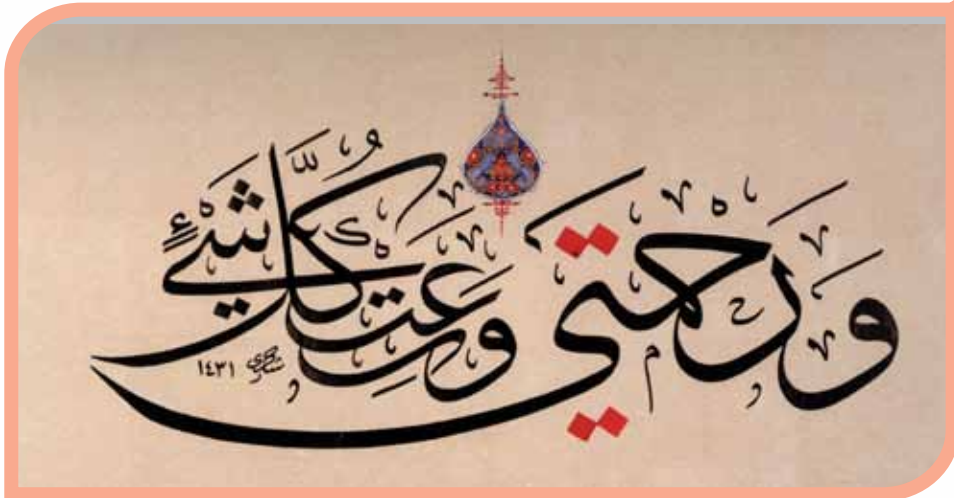 وَرَحْمَتِي وَسِعَتْ كُلَّ شَيْءٍ
شكري ١٤٣١